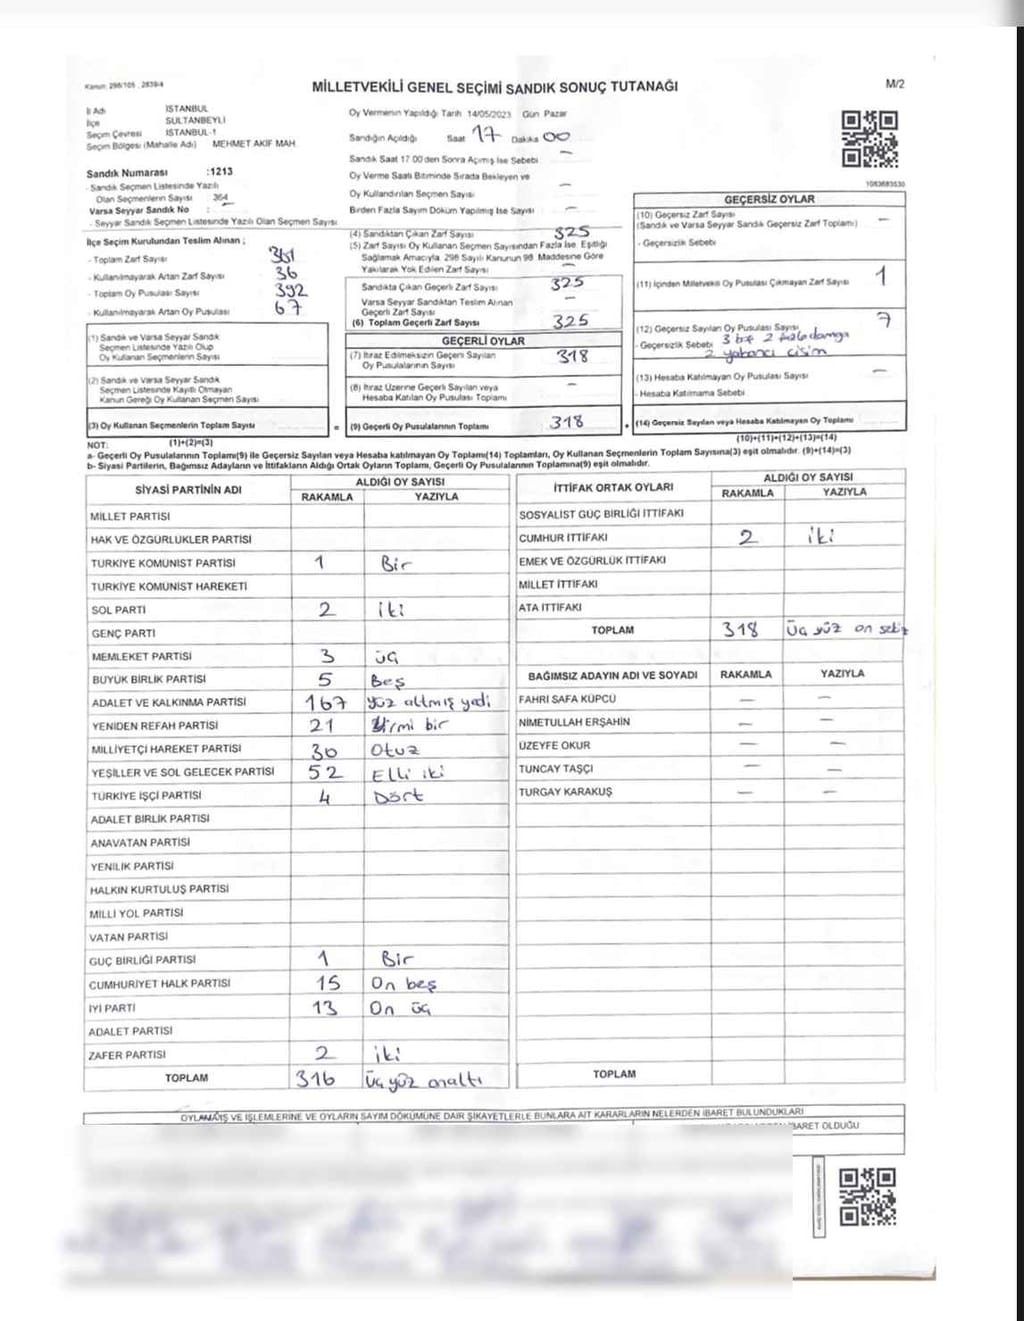 Kanun: 298/105 , 2839/4
MİLLETVEKİLİ GENEL SEÇİMİ SANDIK SONUÇ TUTANAĞI
M/2
İl Adı İSTANBUL
İlçe SULTANBEYLİ
Seçim Çevresi İSTANBUL-1
Seçim Bölgesi (Mahalle Adı) MEHMET AKİF MAH
Sandık Numarası :1213
- Sandık Seçmen Listesinde Yazılı
Olan Seçmenlerin Sayısı 364
Varsa Seyyar Sandık No :
- Seyyar Sandık Seçmen Listesinde Yazılı Olan Seçmen Sayısı
İlçe Seçim Kurulundan Teslim Alınan ;
- Toplam Zarf Sayısı 361
- Kullanılmayarak Artan Zarf Sayısı 36
- Toplam Oy Pusulası Sayısı 392
- Kullanılmayarak Artan Oy Pusulası 67
(1) Sandık ve Varsa Seyyar Sandık
Seçmen Listesinde Yazılı Olup
Oy Kullanan Seçmenlerin Sayısı
(2) Sandık ve Varsa Seyyar Sandık
Seçmen Listesinde Kayıtlı Olmayan
Kanun Gereği Oy Kullanan Seçmen Sayısı
(3) Oy Kullanan Seçmenlerin Toplam Sayısı =
Oy Vermenin Yapıldığı Tarih 14/05/2023 Gün Pazar
Sandığın Açıldığı Saat 17 Dakika 00
Sandık Saat 17 00 den Sonra Açımış İse Sebebi —
Oy Verme Saati Bitiminde Sırada Bekleyen ve
Oy Kullandırılan Seçmen Sayısı —
Birden Fazla Sayım Döküm Yapılmış İse Sayısı —
(4) Sandıktan Çıkan Zarf Sayısı 325
(5) Zarf Sayısı Oy Kullanan Seçmen Sayısından Fazla İse Eşitliği
Sağlamak Amacıyla 298 Sayılı Kanunun 98 Maddesine Göre
Yakılarak Yok Edilen Zarf Sayısı —
Sandıkta Çıkan Geçerli Zarf Sayısı 325
Varsa Seyyar Sandıktan Teslim Alınan
Geçerli Zarf Sayısı —
(6) Toplam Geçerli Zarf Sayısı 325
GEÇERLİ OYLAR
(7) İtiraz Edilmeksizin Geçerli Sayılan
Oy Pusulalarının Sayısı 318
(8) İtiraz Üzerine Geçerli Sayılan veya
Hesaba Katılan Oy Pusulası Toplamı —
(9) Geçerli Oy Pusulalarının Toplamı 318 +
1083683530
GEÇERSİZ OYLAR
(10) Geçersiz Zarf Sayısı
(Sandık ve Varsa Seyyar Sandık Geçersiz Zarf Toplamı) —
- Geçersizlik Sebebi
(11) İçinden Milletvekili Oy Pusulası Çıkmayan Zarf Sayısı 1
(12) Geçersiz Sayılan Oy Pusulası Sayısı 7
- Geçersizlik Sebebi 3 2 fazla damga
2 yabancı cisim
(13) Hesaba Katılmayan Oy Pusulası Sayısı —
- Hesaba Katılmama Sebebi
(14) Geçersiz Sayılan veya Hesaba Katılmayan Oy Toplamı
(10)+(11)+(12)+(13)=(14)
NOT: (1)+(2)=(3)
a- Geçerli Oy Pusulalarının Toplamı(9) ile Geçersiz Sayılan veya Hesaba katılmayan Oy Toplamı(14) Toplamları, Oy Kullanan Seçmenlerin Toplam Sayısına(3) eşit olmalıdır. (9)+(14)=(3)
b- Siyasi Partilerin, Bağımsız Adayların ve İttifakların Aldığı Ortak Oyların Toplamı, Geçerli Oy Pusulalarının Toplamına(9) eşit olmalıdır.
SİYASİ PARTİNİN ADI ALDIĞI OY SAYISI
RAKAMLA YAZIYLA
MİLLET PARTİSİ
HAK VE ÖZGÜRLÜKLER PARTİSİ
TÜRKİYE KOMÜNİST PARTİSİ 1 Bir
TÜRKİYE KOMÜNİST HAREKETİ
SOL PARTİ 2 iki
GENÇ PARTİ
MEMLEKET PARTİSİ 3 üç
BÜYÜK BİRLİK PARTİSİ 5 Beş
ADALET VE KALKINMA PARTİSİ 167 yüz altmış yedi
YENİDEN REFAH PARTİSİ 21 Yirmi bir
MİLLİYETÇİ HAREKET PARTİSİ 30 Otuz
YEŞİLLER VE SOL GELECEK PARTİSİ 52 Elli iki
TÜRKİYE İŞÇİ PARTİSİ 4 Dört
ADALET BİRLİK PARTİSİ
ANAVATAN PARTİSİ
YENİLİK PARTİSİ
HALKIN KURTULUŞ PARTİSİ
MİLLİ YOL PARTİSİ
VATAN PARTİSİ
GÜÇ BİRLİĞİ PARTİSİ 1 Bir
CUMHURİYET HALK PARTİSİ 15 On beş
İYİ PARTİ 13 On üç
ADALET PARTİSİ
ZAFER PARTİSİ 2 iki
TOPLAM 316 üç yüz onaltı
İTTİFAK ORTAK OYLARI ALDIĞI OY SAYISI
RAKAMLA YAZIYLA
SOSYALİST GÜÇ BİRLİĞİ İTTİFAKI
CUMHUR İTTİFAKI 2 iki
EMEK VE ÖZGÜRLÜK İTTİFAKI
MİLLET İTTİFAKI
ATA İTTİFAKI
TOPLAM 318 üç yüz on sekiz
BAĞIMSIZ ADAYIN ADI VE SOYADI RAKAMLA YAZIYLA
FAHRİ SAFA KÜPCÜ — —
NİMETULLAH ERŞAHİN — —
ÜZEYFE OKUR — —
TUNCAY TAŞÇI — —
TURGAY KARAKUŞ — —
TOPLAM
OYLAMA İŞ VE İŞLEMLERİNE VE OYLARIN SAYIM DÖKÜMÜNE DAİR ŞİKAYETLERLE BUNLARA AİT KARARLARIN NELERDEN İBARET BULUNDUKLARI
İBARET OLDUĞU